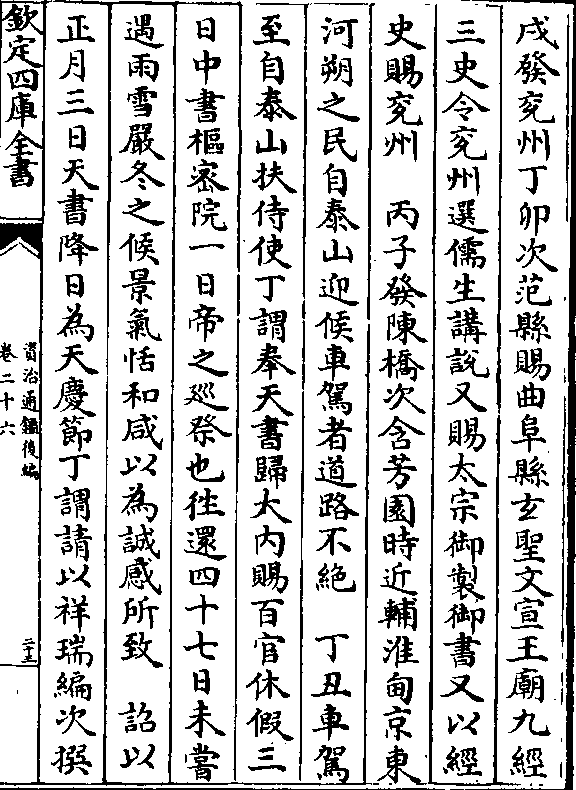 戌發兖州丁卯次范縣賜曲阜縣玄聖文宣王廟九經
三史令兖州選儒生講說又賜太宗御製御書又以經
史賜兖州　丙子發陳橋次含芳園時近輔淮甸京東
河朔之民自泰山迎候車駕者道路不絶　丁丑車駕
至自泰山扶侍使丁謂奉天書歸大内賜百官休假三
日中書樞密院一日帝之廵祭也徃還四十七日未嘗
遇雨雪嚴冬之候景氣恬和咸以為誠感所致　詔以
正月三日天書降日為天慶節丁謂請以祥瑞編次撰
欽定四庫全書
資治通鑑後編
卷二十六
二十五